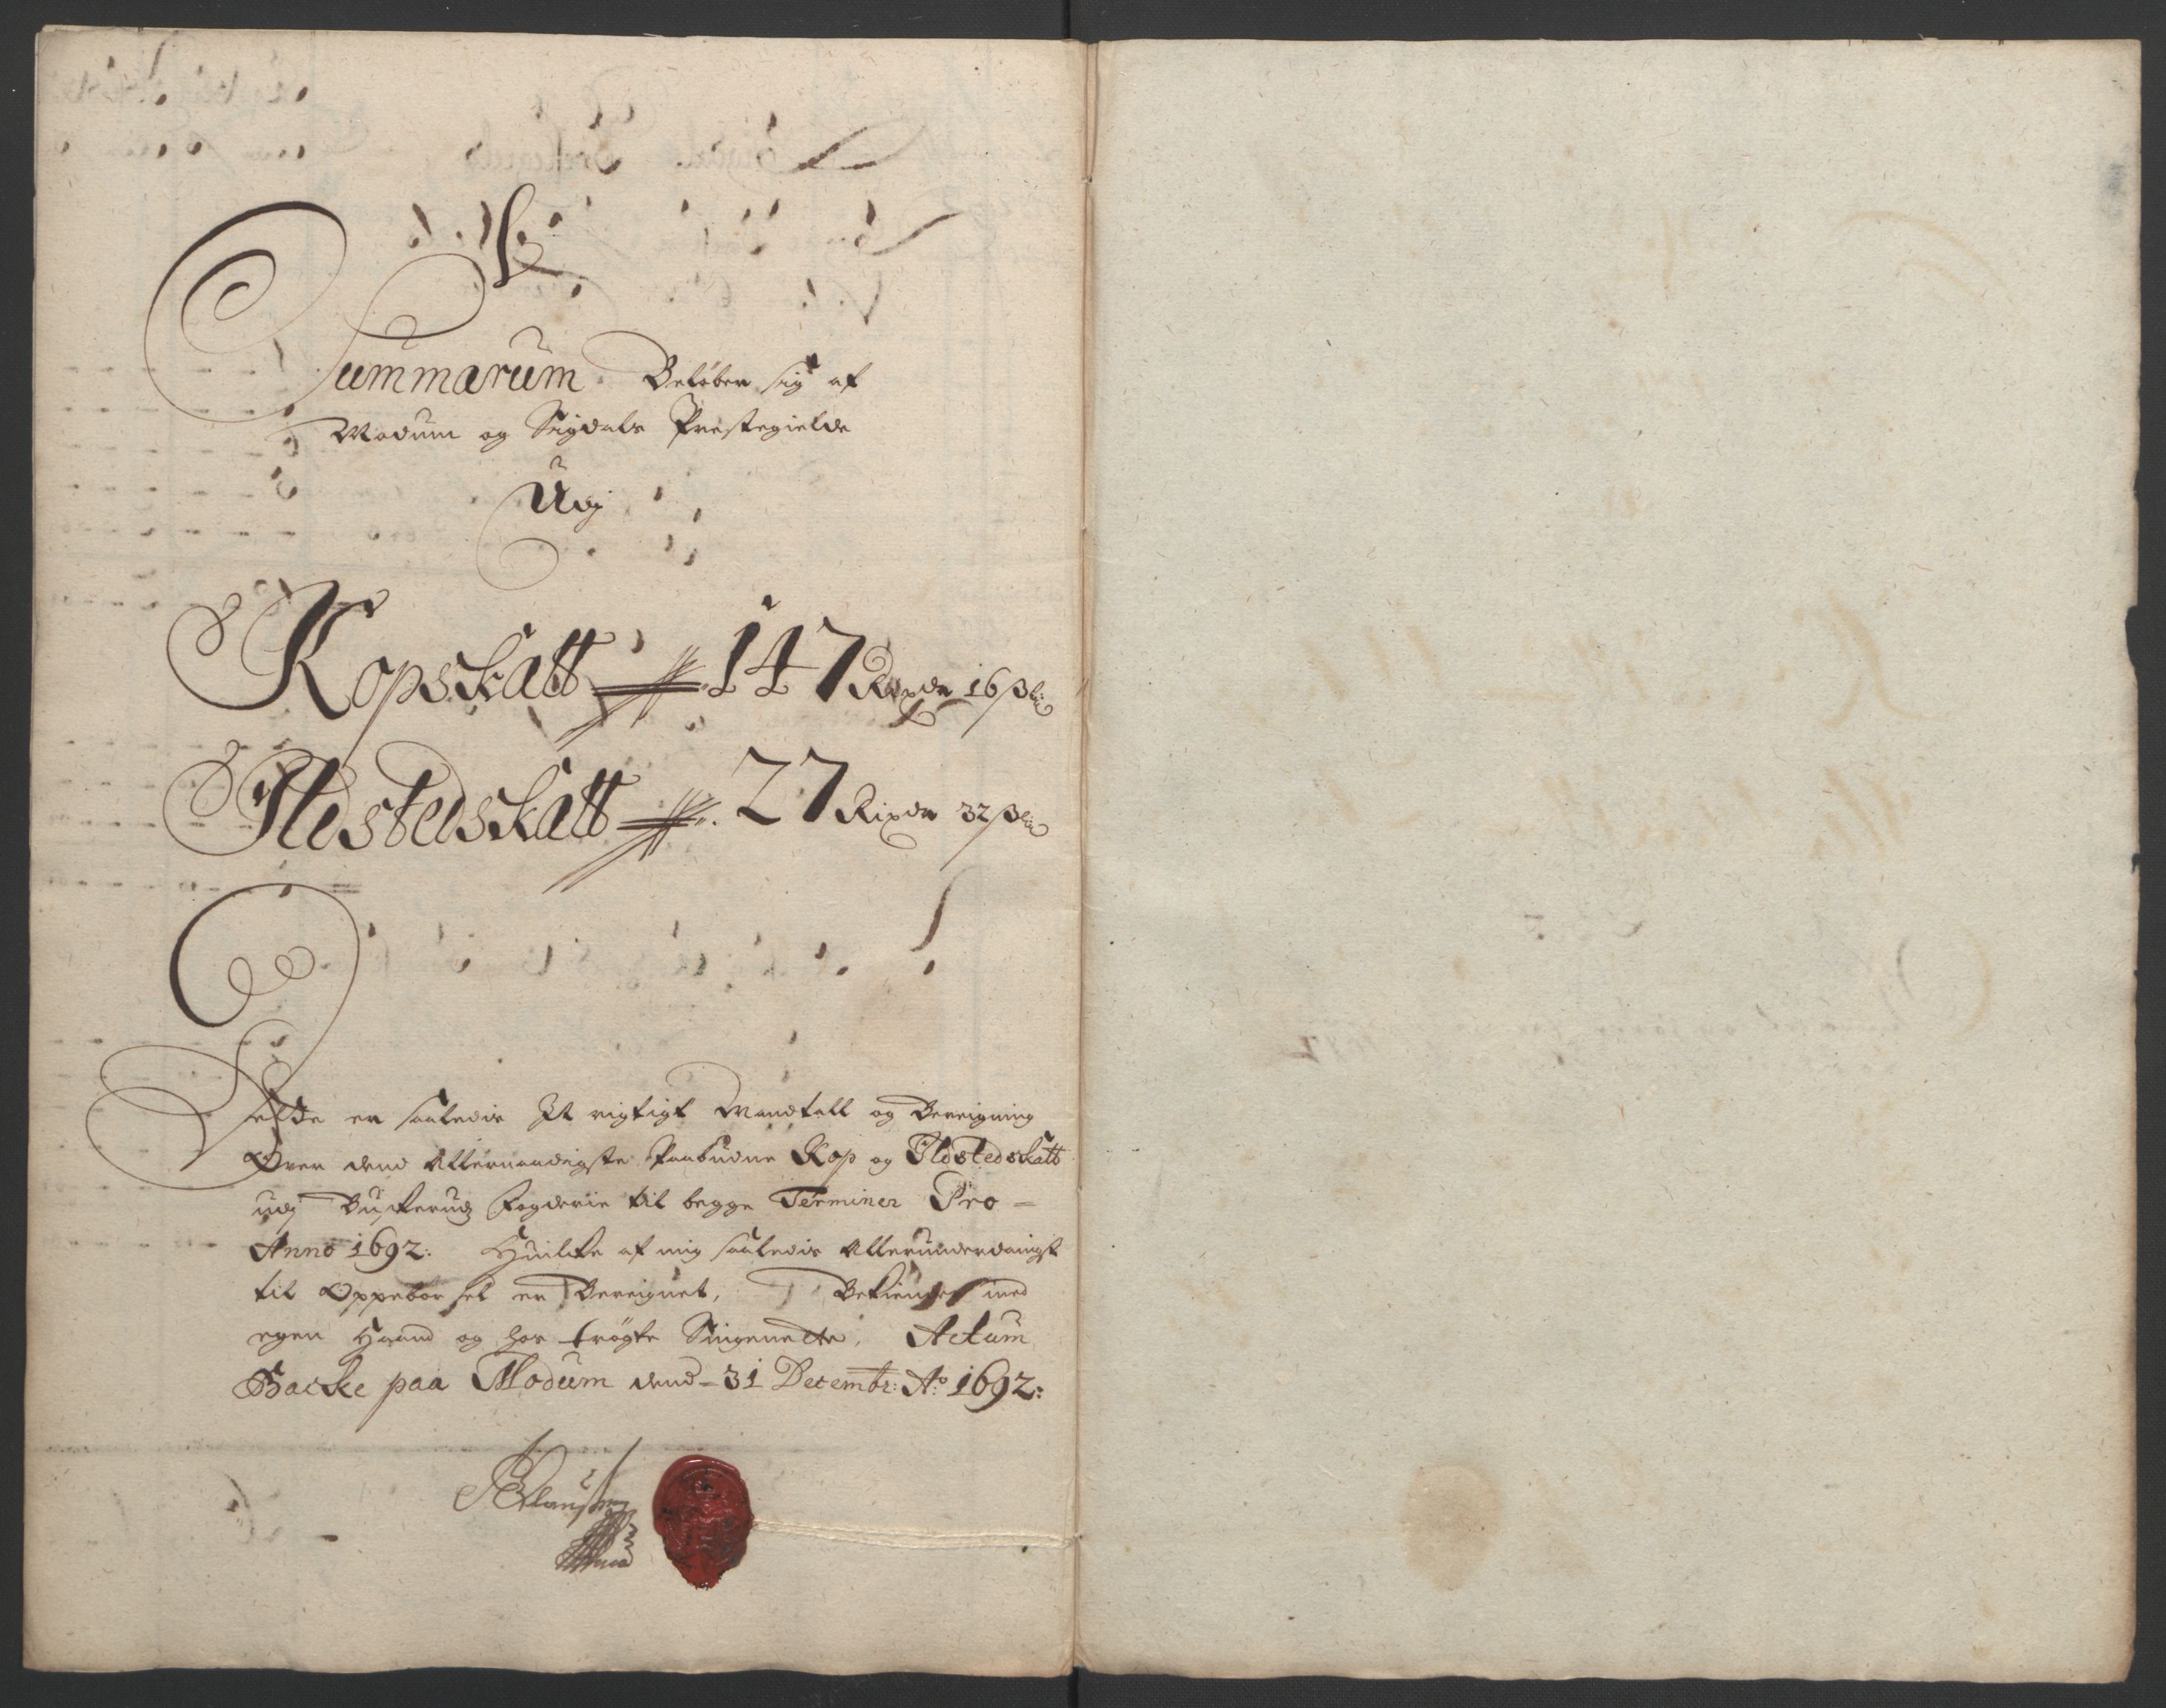 Summarum Beløber sig af
Modum og Sigdals Prestegielde
Udj
Kopskatt 147 Rixdr 16 ß
Ildstedskatt 27 Rixdr 32 ß
Dette er saaledis Et rigtigt Mandtall og Bereigning
Over dend Allernaadigste Paabudne Kop og Ildstedskatt
udj Buskeruds Fogderie til begge Terminer Pro
Anno 1692: Huilke af mig saaledis Allerunderdanigst
til Oppebørsel er Bereignet, Bekiender med
egen Haand og hos trögte Signette, Actum
Backe paa Modum dend 31 Decembr: Ao 1692: